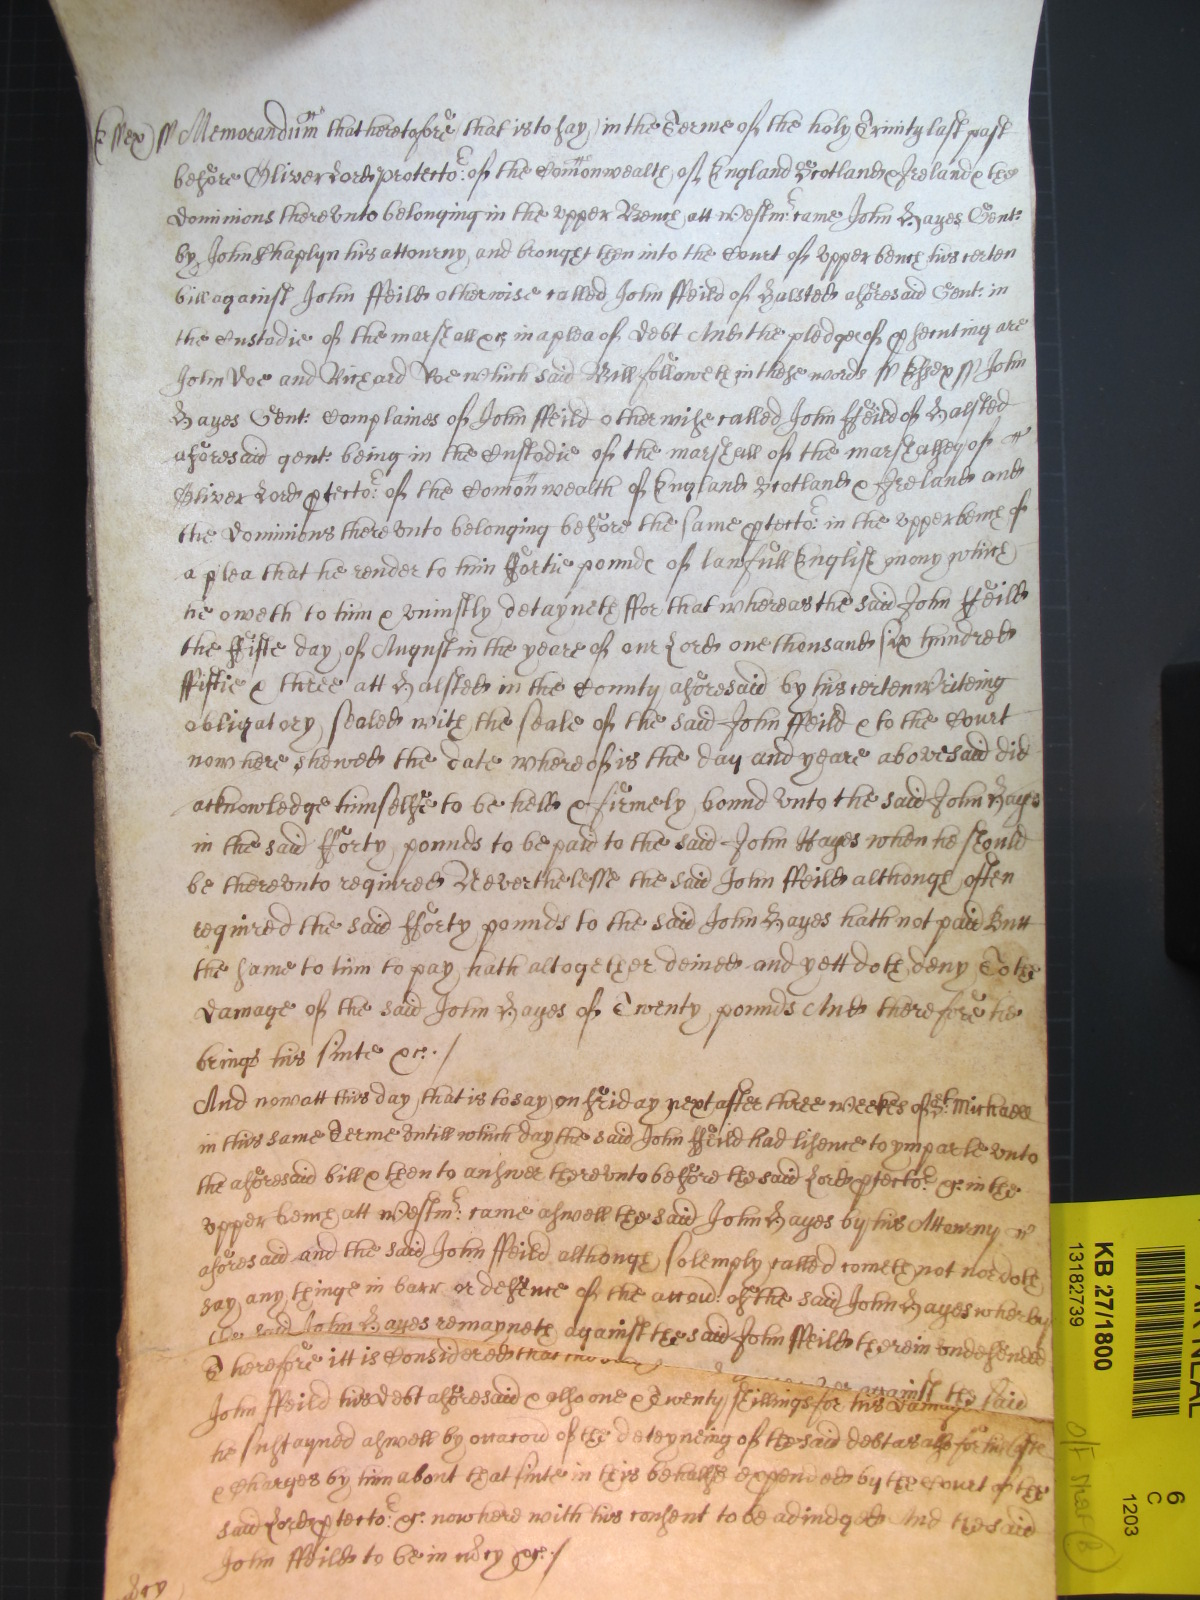 Essex ss Memorandum that heretofore that is to say in the Terme of the holy Trinity last past
before Oliver Lord protector of the Comonwealth of England Scotland & Ireland & the
dominions therevnto belonging in the vpper Bench att Westm: came John Hayes Gent:
by John Chaplyn his attourny and brought then into the Court of vpper bench his certen
bill against John ffeild otherwise called John ffeild of Halsted aforesaid Gent: in
the Custodie of the marshall &c in a plea of debt And the pledges of psecuting are
John Doe and Richard Roe which said Bill followeth in these words ss Essex ss John
Hayes Gent: Complaines of John ffeild otherwise called John ffeild of Halsted
aforesaid gent: being in the Custodie of the marshall of the marshalsey of
Oliver Lord ptector of the Comonwealth of England Scotland & Ireland and
the Dominions therevnto belonging before the same ptector in the vpper bench of
a plea that he render to him ffortie pounds of lawfull English mony which
he oweth to him & vniustly detayneth ffor that whereas the said John ffeild
the ffifte day of August in the yeare of our Lord one thousand six hundred
ffiftie & three att Halsted in the County aforesaid by his certen Writeing
obligatory sealed with the seale of the said John ffeild & to the Court
now here shewed the date whereof is the day and yeare abovesaid did
acknowledge himselfe to be held & firmely bound vnto the said John Hayes
in the said fforty pounds to be paid to the said John Hayes when he should
be therevnto required Neverthelesse the said John ffeild although often
required the said fforty pounds to the said John Hayes hath not paid Butt
the same to him to pay hath altogether denied and yett doth deny To the
damage of the said John Hayes of Twenty pounds And therefore he
brings his suite &c./
And now att this day that is to say on friday next after three weekes of St. Michaell
in this same Terme vntill which day the said John ffeild had lisence to ymparle vnto
the aforesaid bill & then to answer therevnto before the said Lord ptector &c in the
vpper bench att Westm: came aswell the said John Hayes by his Attorny
aforesaid and the said John ffeild although solemply called cometh not nor doth
say any thinge in barr or defence of the accoñ of the said John Hayes wherby
the said John Hayes remayneth against the said John ffeild therein vndefended
Therefore itt is Considered that the said against the said
John ffeild his debt aforesaid & also one & Twenty shillings for his damages
he sustayned aswell by occacon of the deteyneing of the said debt as also for his
& Charges by him about that suite in this behalfe expended by the Court of the
said Lord ptector &c now here with his consent to be adiudged And the said
John ffeild to be in mcy &c./
mcy
KB 27/1800
13182739
6
C
1203